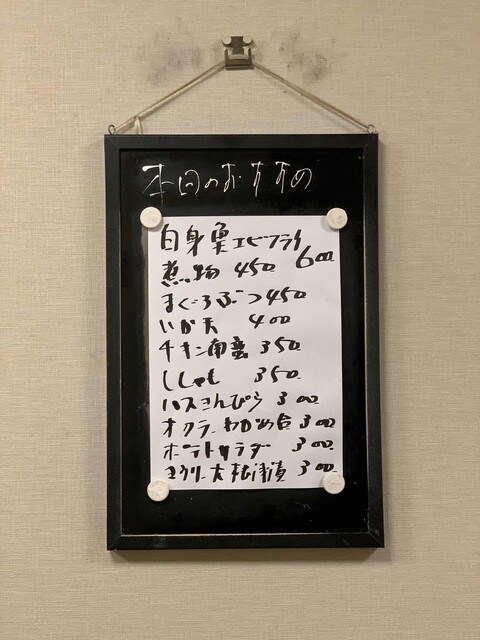 本日のおすすめ
白身魚エビフライ 600
煮物 450
まぐろぶつ 450
いか天 400
チキン南蛮 350
ししゃも 350.
ハスきんぴら 300
オクラ わかめ 300
ポテトサラダー 300.
きうり 大根浅漬 300.